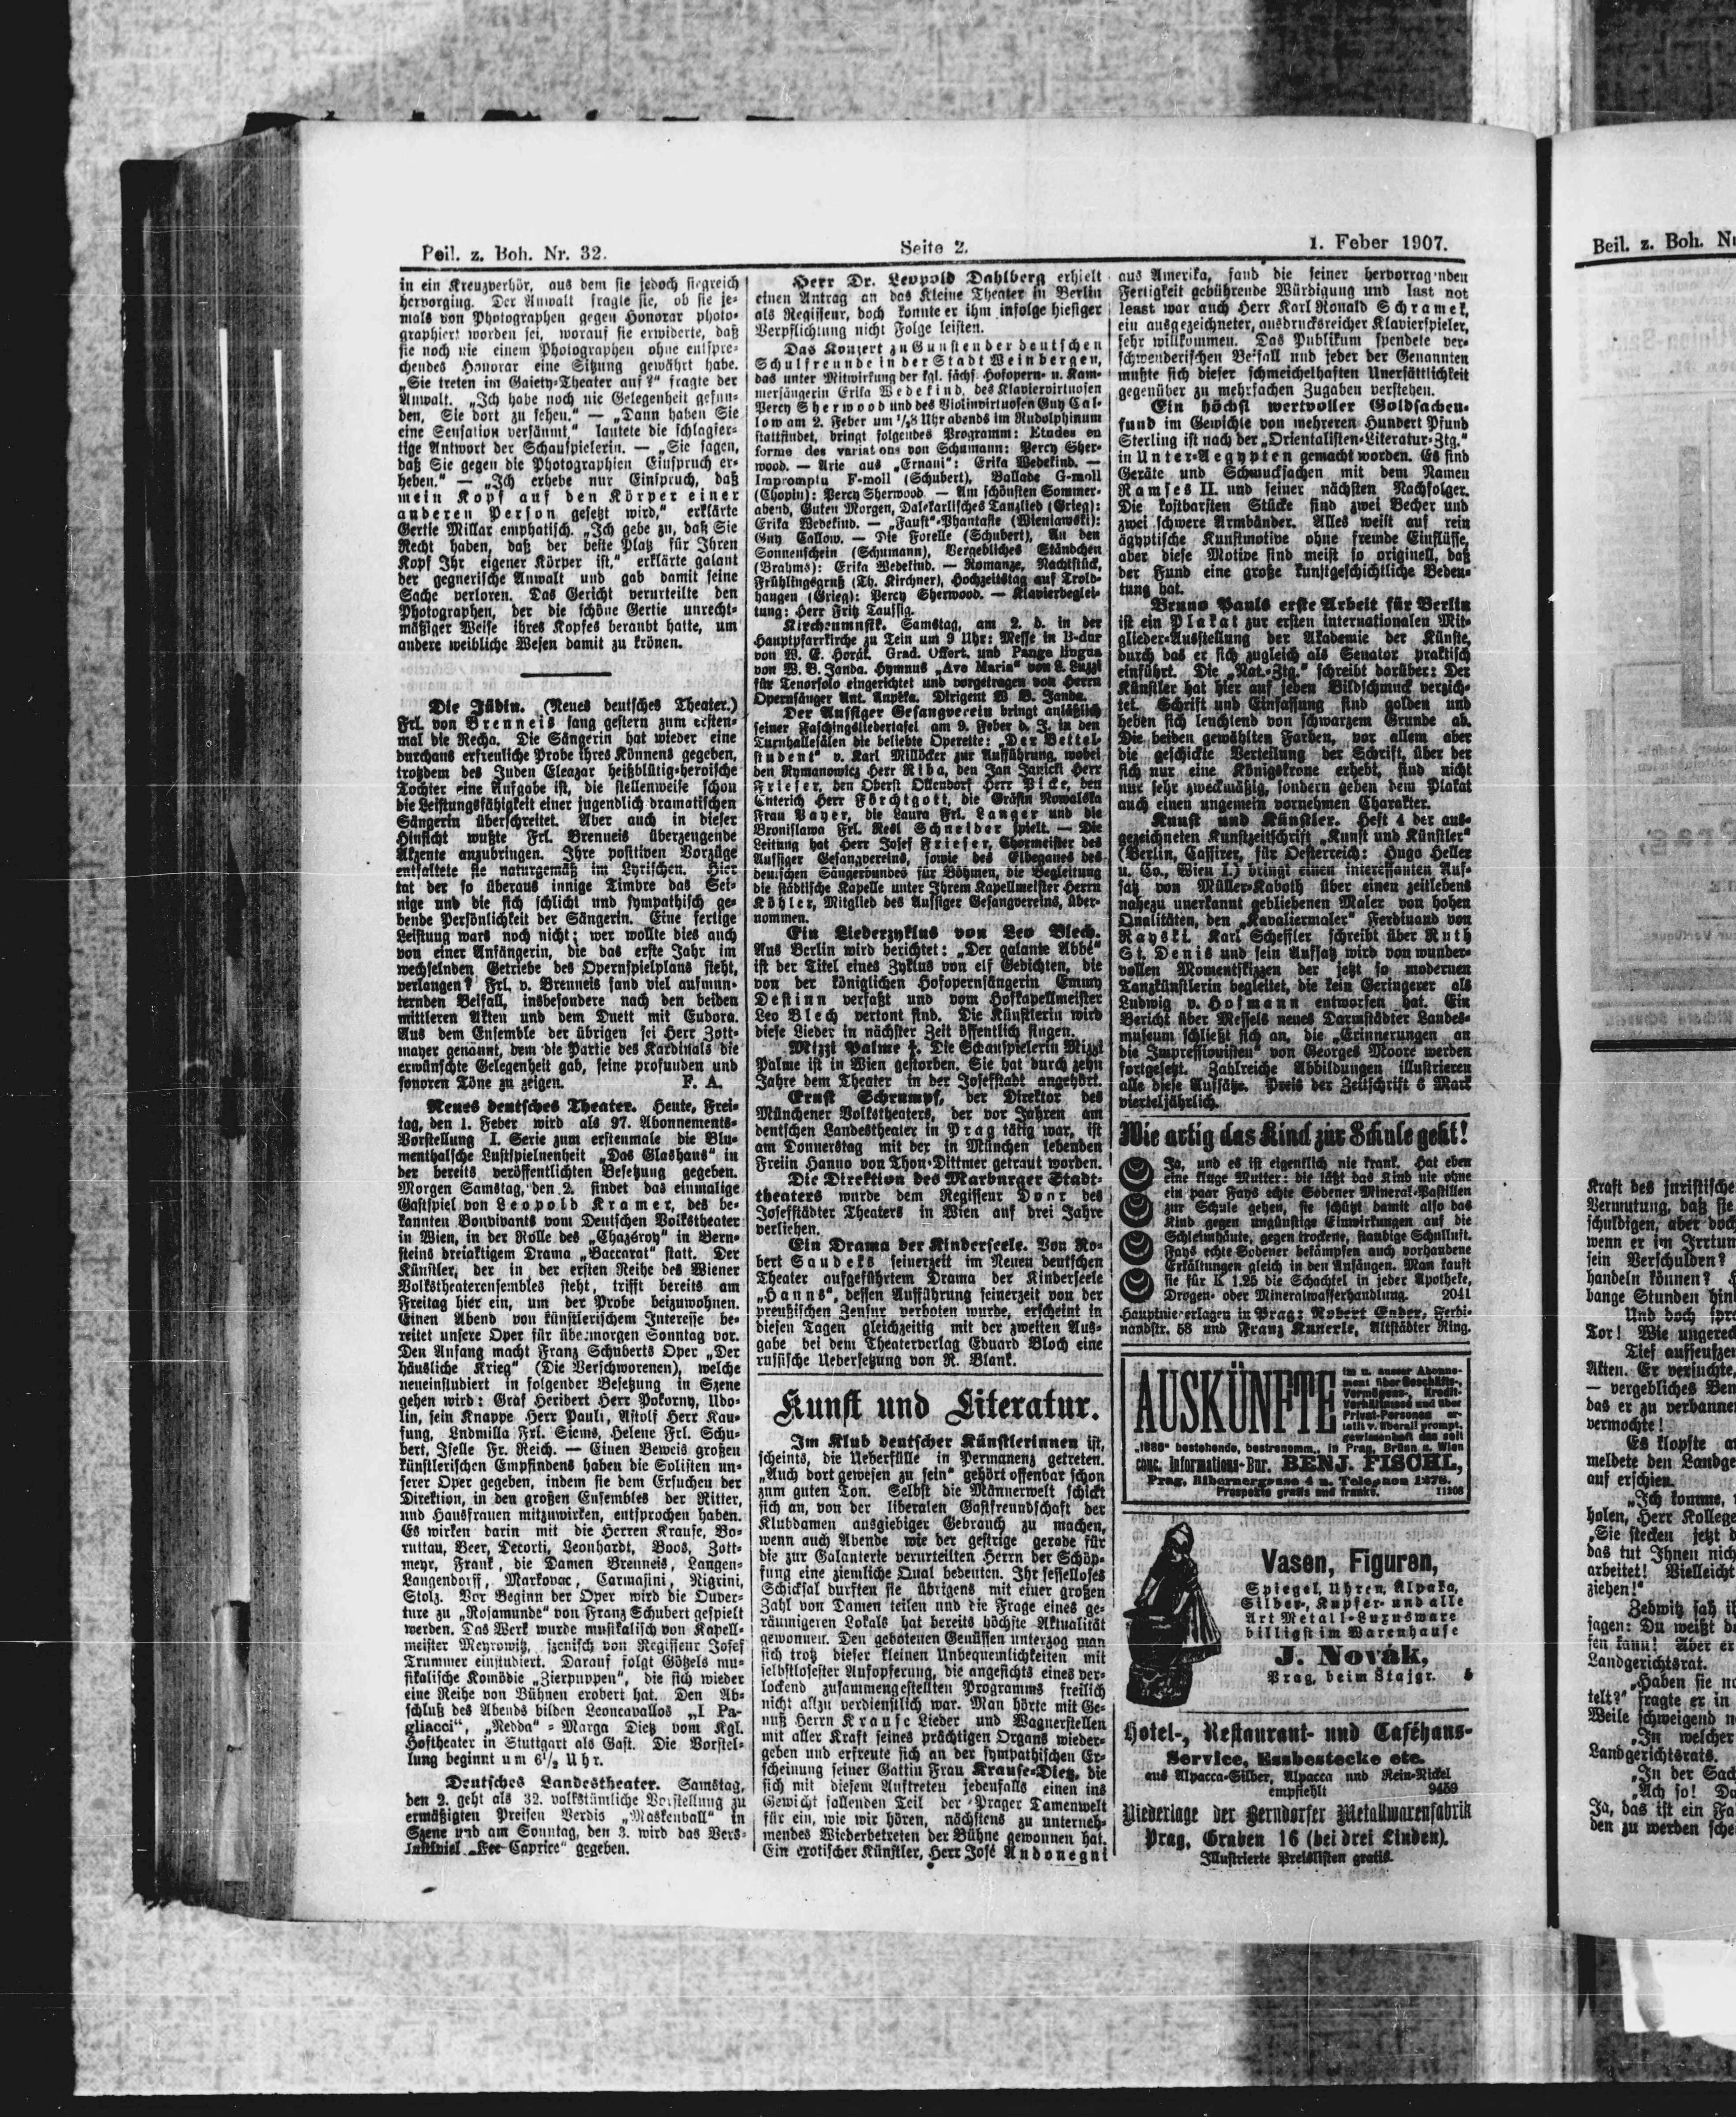 Beil. z. Boh. Nr. 32.
Seite 2.
1. Feber 1907.
in ein Kreuzverhör, aus dem sie jedoch siegreich
hervorging. Der Anwalt fragte sie, ob sie je-
mals von Photographen gegen Honorar photo-
graphiert worden sei, worauf sie erwiderte, daß
sie noch nie einem Photographen ohne entspre-
chendes Honorar eine Sitzung gewährt habe.
„Sie treten im Gaiety-Theater auf?“ fragte der
Anwalt. „Ich habe noch nie Gelegenheit gefun-
den, Sie dort zu sehen.“ — „Dann haben Sie
eine Sensation versäumt,“ lautete die schlagfer-
tige Antwort der Schauspielerin. — „Sie sagen,
daß Sie gegen die Photographien Einspruch er-
heben.“ — „Ich erhebe nur Einspruch, daß
mein Kopf auf den Körper einer
anderen Person gesetzt wird,“ erklärte
Gertie Millar emphatisch. „Ich gebe zu, daß Sie
Recht haben, daß der beste Platz für Ihren
Kopf Ihr eigener Körper ist,“ erklärte galant
der gegnerische Anwalt und gab damit seine
Sache verloren. Das Gericht verurteilte den
Photographen, der die schöne Gertie unrecht-
mäßiger Weise ihres Kopfes beraubt hatte, um
andere weibliche Wesen damit zu krönen.
Die Jüdin. (Neues deutsches Theater.)
Frl. von Brenneis sang gestern zum ersten-
mal die Recha. Die Sängerin hat wieder eine
durchaus erfreuliche Probe ihres Könnens gegeben,
trotzdem des Juden Eleazar heißblütig-heroische
Tochter eine Aufgabe ist, die stellenweise schon
die Leistungsfähigkeit einer jugendlich dramatischen
Sängerin überschreitet. Aber auch in dieser
Hinsicht wußte Frl. Brenneis überzeugende
Akzente anzubringen. Ihre positiven Vorzüge
entfaltete sie naturgemäß im Lyrischen. Hier
tat der so überaus innige Timbre das Sei-
nige und die sich schlicht und sympathisch ge-
bende Persönlichkeit der Sängerin. Eine fertige
Leistung wars noch nicht; wer wollte dies auch
von einer Anfängerin, die das erste Jahr im
wechselnden Getriebe des Opernspielplans steht,
verlangen? Frl. v. Brenneis fand viel aufmun-
ternden Beifall, insbesondere nach den beiden
mittleren Akten und dem Duett mit Eudora.
Aus dem Ensemble der übrigen sei Herr Zott-
mayer genannt, dem die Partie des Kardinals die
erwünschte Gelegenheit gab, seine profunden und
sonoren Töne zu zeigen. F. A.
Neues deutsches Theater. Heute, Frei-
tag, den 1. Feber wird als 97. Abonnements-
Vorstellung I. Serie zum erstenmale die Blu-
menthalsche Lustspielneuheit „Das Glashaus“ in
der bereits veröffentlichten Besetzung gegeben.
Morgen Samstag, den 2. findet das einmalige
Gastspiel von Leopold Kramer, des be-
kannten Bonvivants vom Deutschen Volkstheater
in Wien, in der Rolle des „Chazéroy“ in Bern-
steins dreiaktigem Drama „Baccarat“ statt. Der
Künstler, der in der ersten Reihe des Wiener
Volkstheaterensembles steht, trifft bereits am
Freitag hier ein, um der Probe beizuwohnen.
Einen Abend von künstlerischem Interesse be-
reitet unsere Oper für übermorgen Sonntag vor.
Den Anfang macht Franz Schuberts Oper „Der
häusliche Krieg“ (Die Verschworenen), welche
neueinstudiert in folgender Besetzung in Szene
gehen wird: Graf Heribert Herr Pokorny, Udo-
lin, sein Knappe Herr Pauli, Astolf Herr Kau-
fung, Ludmilla Frl. Siems, Helene Frl. Schu-
bert, Iselle Fr. Reich. — Einen Beweis großen
künstlerischen Empfindens haben die Solisten un-
serer Oper gegeben, indem sie dem Ersuchen der
Direktion, in den großen Ensembles der Ritter,
und Hausfrauen mitzuwirken, entsprochen haben.
Es wirken darin mit die Herren Krause, Bo-
ruttau, Beer, Decorti, Leonhardt, Boos, Zott-
meyr, Frank, die Damen Brenneis, Langen-
Langendorff, Markovac, Carmasini, Rigrini,
Stolz. Vor Beginn der Oper wird die Ouver-
ture zu „Rosamunde“ von Franz Schubert gespielt
werden. Das Werk wurde musikalisch von Kapell-
meister Meyrowitz, szenisch von Regisseur Josef
Trummer einstudiert. Darauf folgt Götzels mu-
sikalische Komödie „Zierpuppen“, die sich wieder
eine Reihe von Bühnen erobert hat. Den Ab-
schluß des Abends bilden Leoncavallos „I Pa-
gliacci“, „Nedda“ = Marga Dietz vom Kgl.
Hoftheater in Stuttgart als Gast. Die Vorstel-
lung beginnt um 6½ Uhr.
Deutsches Landestheater. Samstag,
den 2. geht als 32. volkstümliche Vorstellung zu
ermäßigten Preisen Verdis „Maskenball“ in
Szene und am Sonntag, den 3. wird das Vers-
lustspiel „Fee Caprice“ gegeben.
Herr Dr. Leopold Dahlberg erhielt
einen Antrag an das Kleine Theater in Berlin
als Regisseur, doch konnte er ihm infolge hiesiger
Verpflichtung nicht Folge leisten.
Das Konzert zu Gunsten der deutschen
Schulfreunde in der Stadt Weinbergen,
das unter Mitwirkung der kgl. sächs. Hofopern- u. Kam-
mersängerin Erika Wedekind, des Klaviervirtuosen
Percy Sherwood und des Violinvirtuosen Guy Cal-
low am 2. Feber um ½8 Uhr abends im Rudolphinum
stattfindet, bringt folgendes Programm: Etudes en
forme des variations von Schumann: Percy Sher-
wood. — Arie aus „Ernani“: Erika Wedekind. —
Impromptu F-moll (Schubert), Ballade G-moll
(Chopin): Percy Sherwood. — Am schönsten Sommer-
abend, Guten Morgen, Dalekarlisches Tanzlied (Grieg):
Erika Wedekind. — „Faust“-Phantasie (Wieniawski):
Guy Callow. — Die Forelle (Schubert), An den
Sonnenschein (Schumann), Vergebliches Ständchen
(Brahms): Erika Wedekind. — Romanze, Nachtstück,
Frühlingsgruß (Th. Kirchner), Hochzeitstag auf Trold-
hangen (Grieg): Percy Sherwood. — Klavierbeglei-
tung: Herr Fritz Taussig.
Kirchenmusik. Samstag, am 2. d. in der
Hauptpfarrkirche zu Tein um 9 Uhr: Messe in B-dur
von W. E. Horák. Grad. Offert. und Pange lingua
von W. B. Janda. Hymnus „Ave Maria“ von L. Luzzi
für Tenorsolo eingerichtet und vorgetragen von Herrn
Opernsänger Ant. Aupěka. Dirigent W. B. Janda.
Der Aussiger Gesangverein bringt anläßlich
seiner Faschingsliedertafel am 9. Feber d. J. in den
Turnhallesälen die beliebte Operette: „Der Bettel-
student“ v. Karl Millöcker zur Aufführung, wobei
den Rymanowicz Herr Riba, den Jan Janicki Herr
Frieser, den Oberst Ollendorf Herr Picke, den
Enterich Herr Förchtgott, die Gräfin Nowalska
Frau Bayer, die Laura Frl. Langer und die
Bronislawa Frl. Resl Schneider spielt. — Die
Leitung hat Herr Josef Frieser, Chormeister des
Aussiger Gesangvereins, sowie des Elbegaues des
deutschen Sängerbundes für Böhmen, die Begleitung
die städtische Kapelle unter Ihrem Kapellmeister Herrn
Köhler, Mitglied des Aussiger Gesangvereins, über-
nommen.
Ein Liederzyklus von Leo Blech.
Aus Berlin wird berichtet: „Der galante Abbé“
ist der Titel eines Zyklus von elf Gedichten, die
von der königlichen Hofopernsängerin Emmy
Destinn verfaßt und vom Hofkapellmeister
Leo Blech vertont sind. Die Künstlerin wird
diese Lieder in nächster Zeit öffentlich singen.
Mizzi Palme †. Die Schauspielerin Mizzi
Palme ist in Wien gestorben. Sie hat durch zehn
Jahre dem Theater in der Josefstadt angehört.
Ernst Schrumpf, der Direktor des
Münchener Volkstheaters, der vor Jahren am
deutschen Landestheater in Prag tätig war, ist
am Donnerstag mit der in München lebenden
Freiin Hanno von Thon-Dittmer getraut worden.
Die Direktion des Marburger Stadt-
theaters wurde dem Regisseur Dorr des
Josefstädter Theaters in Wien auf drei Jahre
verliehen.
Ein Drama der Kinderseele. Von Ro-
bert Saudeks seinerzeit im Neuen deutschen
Theater aufgeführtem Drama der Kinderseele
„Hanns“, dessen Aufführung seinerzeit von der
preußischen Zensur verboten wurde, erscheint in
diesen Tagen gleichzeitig mit der zweiten Aus-
gabe bei dem Theaterverlag Eduard Bloch eine
russische Uebersetzung von R. Blank.
Kunst und Literatur.
Im Klub deutscher Künstlerinnen ist,
scheints, die Ueberfülle in Permanenz getreten.
„Auch dort gewesen zu sein“ gehört offenbar schon
zum guten Ton. Selbst die Männerwelt schickt
sich an, von der liberalen Gastfreundschaft der
Klubdamen ausgiebiger Gebrauch zu machen,
wenn auch Abende wie der gestrige gerade für
die zur Galanterie verurteilten Herrn der Schöp-
fung eine ziemliche Qual bedeuten. Ihr sesselloses
Schicksal durften sie übrigens mit einer großen
Zahl von Damen teilen und die Frage eines ge-
räumigeren Lokals hat bereits höchste Aktualität
gewonnen. Den gebotenen Genüssen unterzog man
sich trotz dieser kleinen Unbequemlichkeiten mit
selbstlosester Aufopferung, die angesichts eines ver-
lockend zusammengestellten Programms freilich
nicht allzu verdienstlich war. Man hörte mit Ge-
nuß Herrn Krause Lieder und Wagnerstellen
mit aller Kraft seines prächtigen Organs wieder-
geben und erfreute sich an der sympathischen Er-
scheinung seiner Gattin Frau Krause-Dietz, die
sich mit diesem Auftreten jedenfalls einen ins
Gewicht fallenden Teil der Prager Damenwelt
für ein, wie wir hören, nächstens zu unterneh-
mendes Wiederbetreten der Bühne gewonnen hat.
Ein exotischer Künstler, Herr José Andonegni
aus Amerika, fand die seiner hervorragenden
Fertigkeit gebührende Würdigung und last not
least war auch Herr Karl Ronald Schramek,
ein ausgezeichneter, ausdrucksreicher Klavierspieler,
sehr willkommen. Das Publikum spendete ver-
schwenderischen Beifall und jeder der Genannten
mußte sich dieser schmeichelhaften Unersättlichkeit
gegenüber zu mehrfachen Zugaben verstehen.
Ein höchst wertvoller Goldsachen-
fund im Gewichte von mehreren Hundert Pfund
Sterling ist nach der „Orientalisten-Literatur-Ztg.“
in Unter-Aegypten gemacht worden. Es sind
Geräte und Schmucksachen mit dem Namen
Ramses II. und seiner nächsten Nachfolger.
Die kostbarsten Stücke sind zwei Becher und
zwei schwere Armbänder. Alles weist auf rein
ägyptische Kunstmotive ohne fremde Einflüsse,
aber diese Motive sind meist so originell, daß
der Fund eine große kunstgeschichtliche Bedeu-
tung hat.
Bruno Pauls erste Arbeit für Berlin
ist ein Plakat zur ersten internationalen Mit-
glieder-Ausstellung der Akademie der Künste,
durch das er sich zugleich als Senator praktisch
einführt. Die „Nat.-Ztg.“ schreibt darüber: Der
Künstler hat hier auf jeden Bildschmuck verzich-
tet. Schrift und Einfassung sind golden und
heben sich leuchtend von schwarzem Grunde ab.
Die beiden gewählten Farben, vor allem aber
die geschickte Verteilung der Schrift, über der
sich nur eine Königskrone erhebt, sind nicht
nur sehr zweckmäßig, sondern geben dem Plakat
auch einen ungemein vornehmen Charakter.
Kunst und Künstler. Heft 4 der aus-
gezeichneten Kunstzeitschrift „Kunst und Künstler“
(Berlin, Cassirer, für Oesterreich: Hugo Heller
u. Co., Wien I.) bringt einen interessanten Auf-
satz von Müller-Kaboth über einen zeitlebens
nahezu unerkannt gebliebenen Maler von hohen
Qualitäten, den „Kavaliermaler“ Ferdinand von
Rayski. Karl Scheffler schreibt über Ruth
St. Denis und sein Aufsatz wird von wunder-
vollen Momentskizzen der jetzt so modernen
Tanzkünstlerin begleitet, die kein Geringerer als
Ludwig v. Hofmann entworfen hat. Ein
Bericht über Messels neues Darmstädter Landes-
museum schließt sich an, die „Erinnerungen an
die Impressionisten“ von Georges Moore werden
fortgesetzt. Zahlreiche Abbildungen illustrieren
alle diese Aufsätze. Preis der Zeitschrift 6 Mark
vierteljährlich.
Wie artig das Kind zur Schule geht!
Ja, und es ist eigentlich nie krank. Hat eben
eine kluge Mutter: die läßt das Kind nie ohne
ein paar Fays echte Sodener Mineral-Pastillen
zur Schule gehen, sie schützt damit also das
Kind gegen ungünstige Einwirkungen auf die
Schleimhäute, gegen trockene, staubige Schulluft.
Fays echte Sodener bekämpfen auch vorhandene
Erkältungen gleich in den Anfängen. Man kauft
sie für K 1.25 die Schachtel in jeder Apotheke,
Drogen- oder Mineralwasserhandlung. 2041
Hauptniederlagen in Prag: Robert Ender, Ferdi-
nandstr. 58 und Franz Kunerle, Altstädter Ring.
AUSKÜNFTE
im u. ausser Abonne-
ment über Geschäfts-,
Vermögens-, Kredit-
Verhältnisse und über
Privat-Personen er-
teilt v. überall prompt,
gewissenhaft das seit
„1880“ bestehende, bestrenomm., in Prag, Brünn u. Wien
conc. Informations-Bur. BENJ. FISCHL,
Prag, Hibernergasse 4 n. Telephon 1278.
Prospekte gratis und franko. 11208
Vasen, Figuren,
Spiegel, Uhren, Alpaka,
Silber-, Kupfer- und alle
Art Metall-Luxusware
billigst im Warenhause
J. Novák,
Prag, beim Štajgr. 5
Hotel-, Restaurant- und Caféhaus-
Service, Essbestecke etc.
aus Alpacca-Silber, Alpacca und Rein-Nickel
empfiehlt 9459
Niederlage der Berndorfer Metallwarenfabrik
Prag, Graben 16 (bei drei Linden).
Illustrierte Preislisten gratis.
Beil. z. Boh.
Kraft des juristische
Vermutung, daß sie
schuldigen, aber doch
wenn er im Irrtum
sein Verschulden?
handeln können?
bange Stunden
Und doch
Tor! Wie
Tief
Akten. Er versuchte,
— vergebliches
das er zu
vermochte!
Es klopfte
meldete den
auf erschien.
„Ich komme,
holen, Herr
„Sie stecken jetzt
das tut Ihnen
arbeitet! Vielleicht
ziehen!“
Zedwitz sah
sagen: Du weißt
kann! Aber er
Landgerichtsrat.
„Haben sie
telt?“ fragte er in
Weile schweigend
„In welcher
Landgerichtsrats.
„In der
„Ach so!
Ja, das ist ein
den zu werden